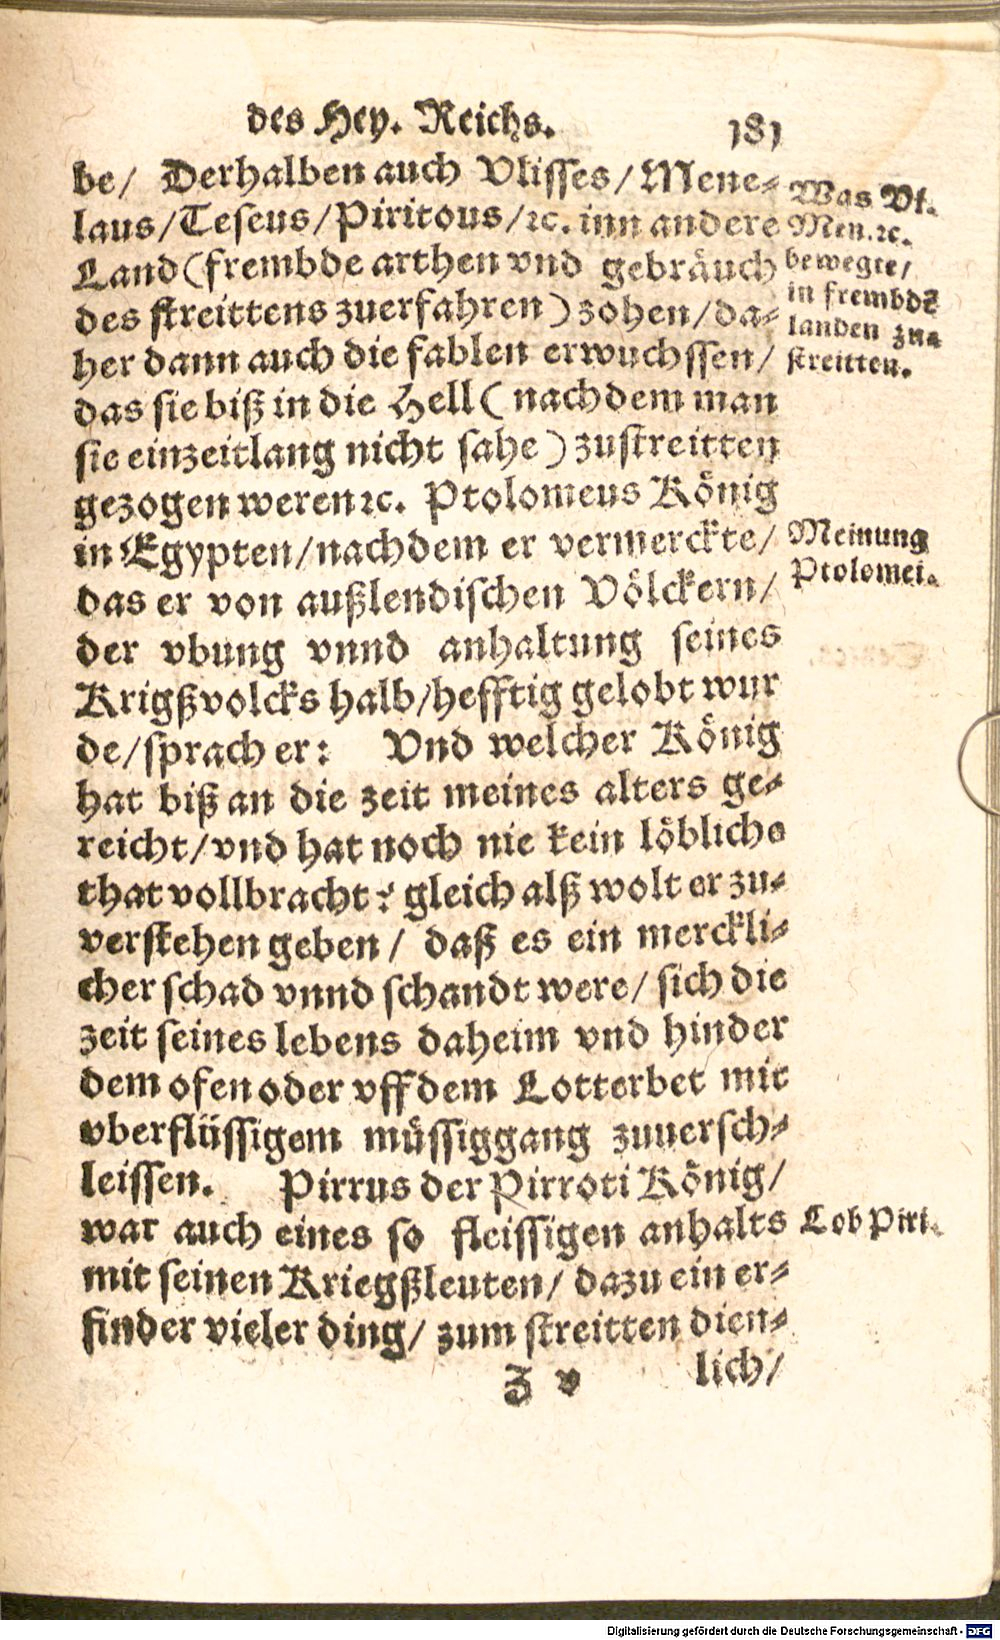 des Hey. Reichs. 181
be/ Derhalben auch Vlisses/Mene-
laus/Teseus/Piritous/ꝛc. inn andere
Land (frembde arthen vnd gebräuch
des streittens zuerfahren) zohen/da-
her dann auch die fablen erwuchssen/
das sie biß in die Hell (nachdem man
sie einzeitlang nicht sahe) zustreitten
gezogen weren ꝛc. Ptolomeus König
in Egypten/nachdem er vermerckte/
das er von außlendischen Völckern/
der vbung vnnd anhaltung seines
Krigßvolcks halb/hefftig gelobt wur
de/sprach er: Vnd welcher König
hat biß an die zeit meines alters ge-
reicht/vnd hat noch nie kein löbliche
that vollbracht: gleich alß wolt er zu-
verstehen geben/ daß es ein merckli-
cher schad vnnd schandt were/ sich die
zeit seines lebens daheim vnd hinder
dem ofen oder vff dem Lotterbet mit
vberflüssigem müssiggang zuuersch-
leissen. Pirrus der Pirroti König/
war auch eines so fleissigen anhalts
mit seinen Kriegßleuten/ dazu ein er-
finder vieler ding/ zum streitten dien-
Z v lich/
Was Vl.
Men. ꝛc.
bewegte/
in frembdē
landen zu-
streitten.
Meinung
Ptolomei.
Lob Piri.
Digitalisierung gefördert durch die Deutsche Forschungsgemeinschaft - DFG